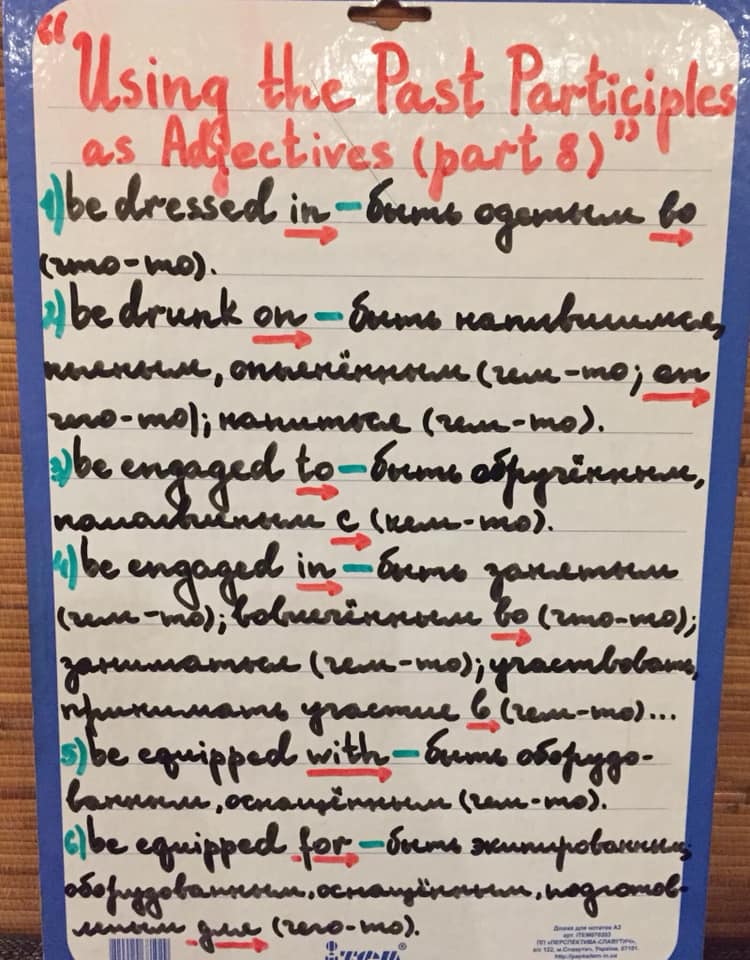 “Using the Past Participles
as Adjectives (part 8)”
1) be dressed in – быть одетым во
(что-то).
2) be drunk on – быть напившимся,
пьяным, опьянённым (чем-то; от
чего-то); напиться (чем-то).
3) be engaged to – быть обручённым,
помолвленным с (кем-то).
4) be engaged in – быть занятым
(чем-то); вовлечённым во (что-то);
заниматься (чем-то); участвовать,
принимать участие в (чем-то)...
5) be equipped with – быть оборудо-
ванным, оснащённым (чем-то).
6) be equipped for – быть экипированным,
оборудованным, оснащённым, подготов-
леным для (чего-то).
ітем®
Дошка для нотаток А3
арт. ITEM070203
ПП «ПЕРСПЕКТИВА-СЛАВУТИЧ»,
а/с 122, м.Славутич, Україна, 07101.